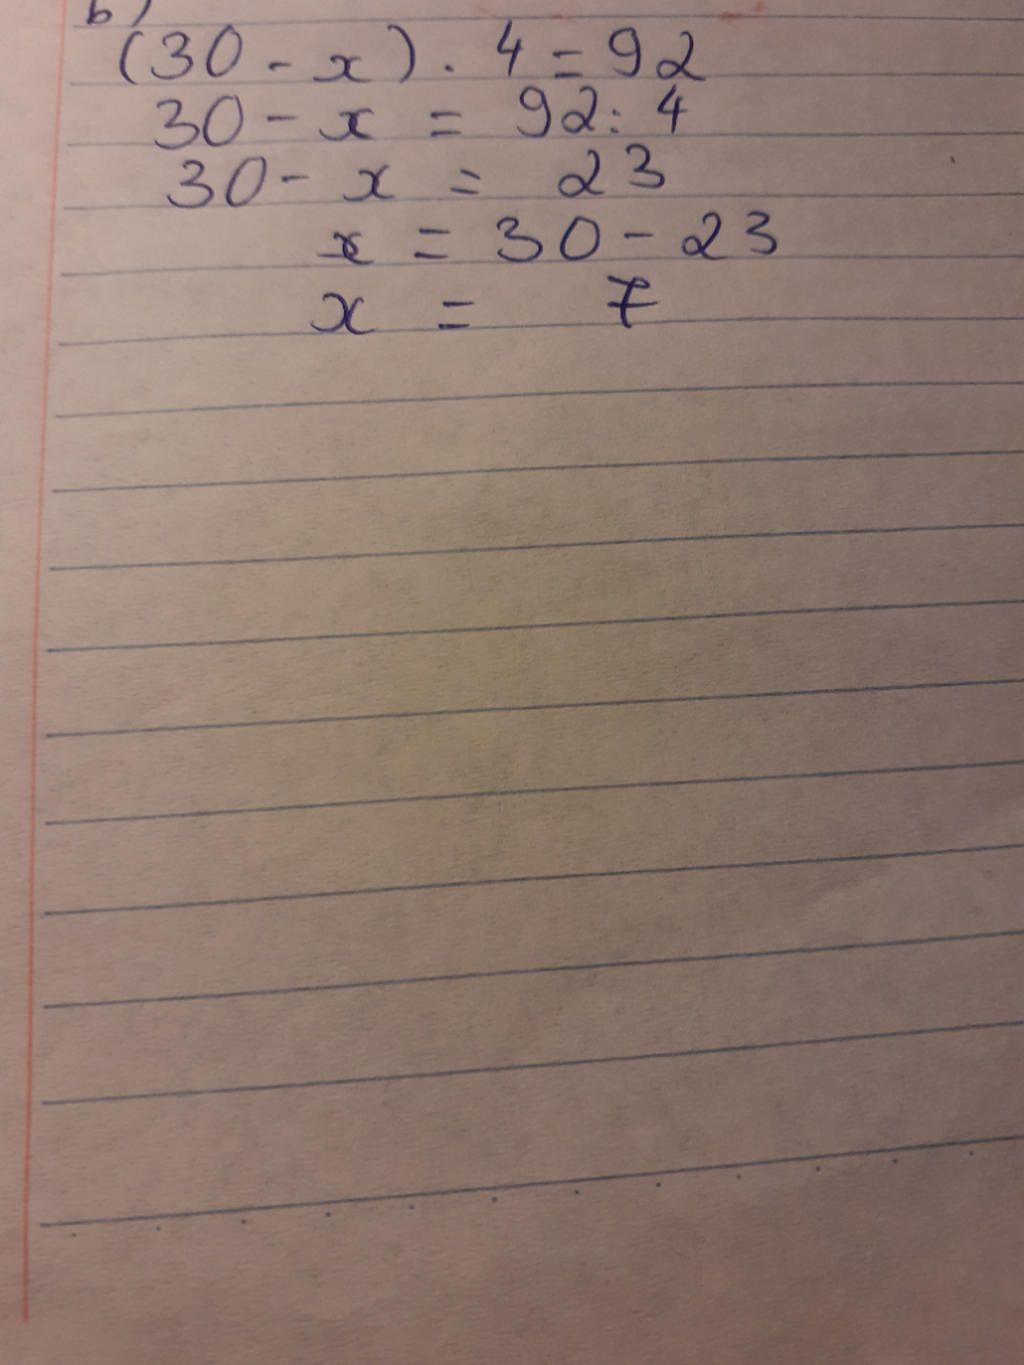 b)
(30 - x) . 4 = 92
30 - x = 92 : 4
30 - x = 23
x = 30 - 23
x = 7